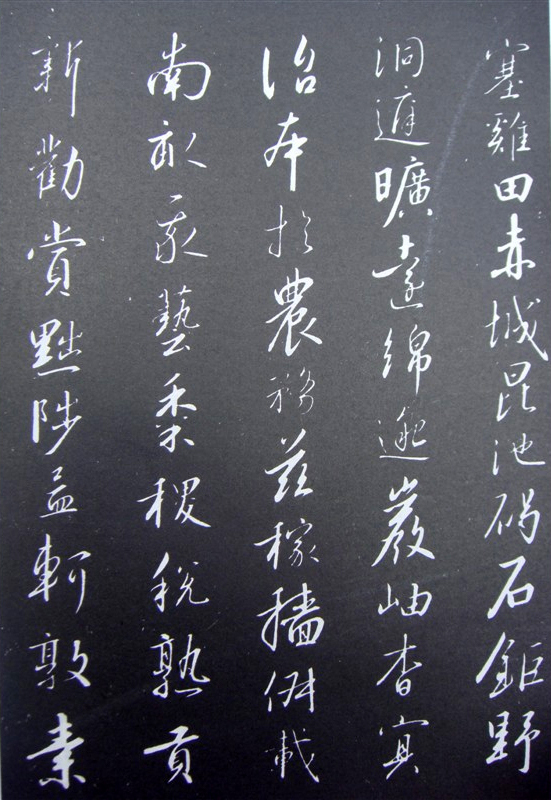 塞雞田赤城昆池碣石鉅野
洞庭曠遠綿邈巖岫杳冥
治本於農務茲稼穡俶載
南畝我藝黍稷稅熟貢
新勸賞黜陟孟軻敦素